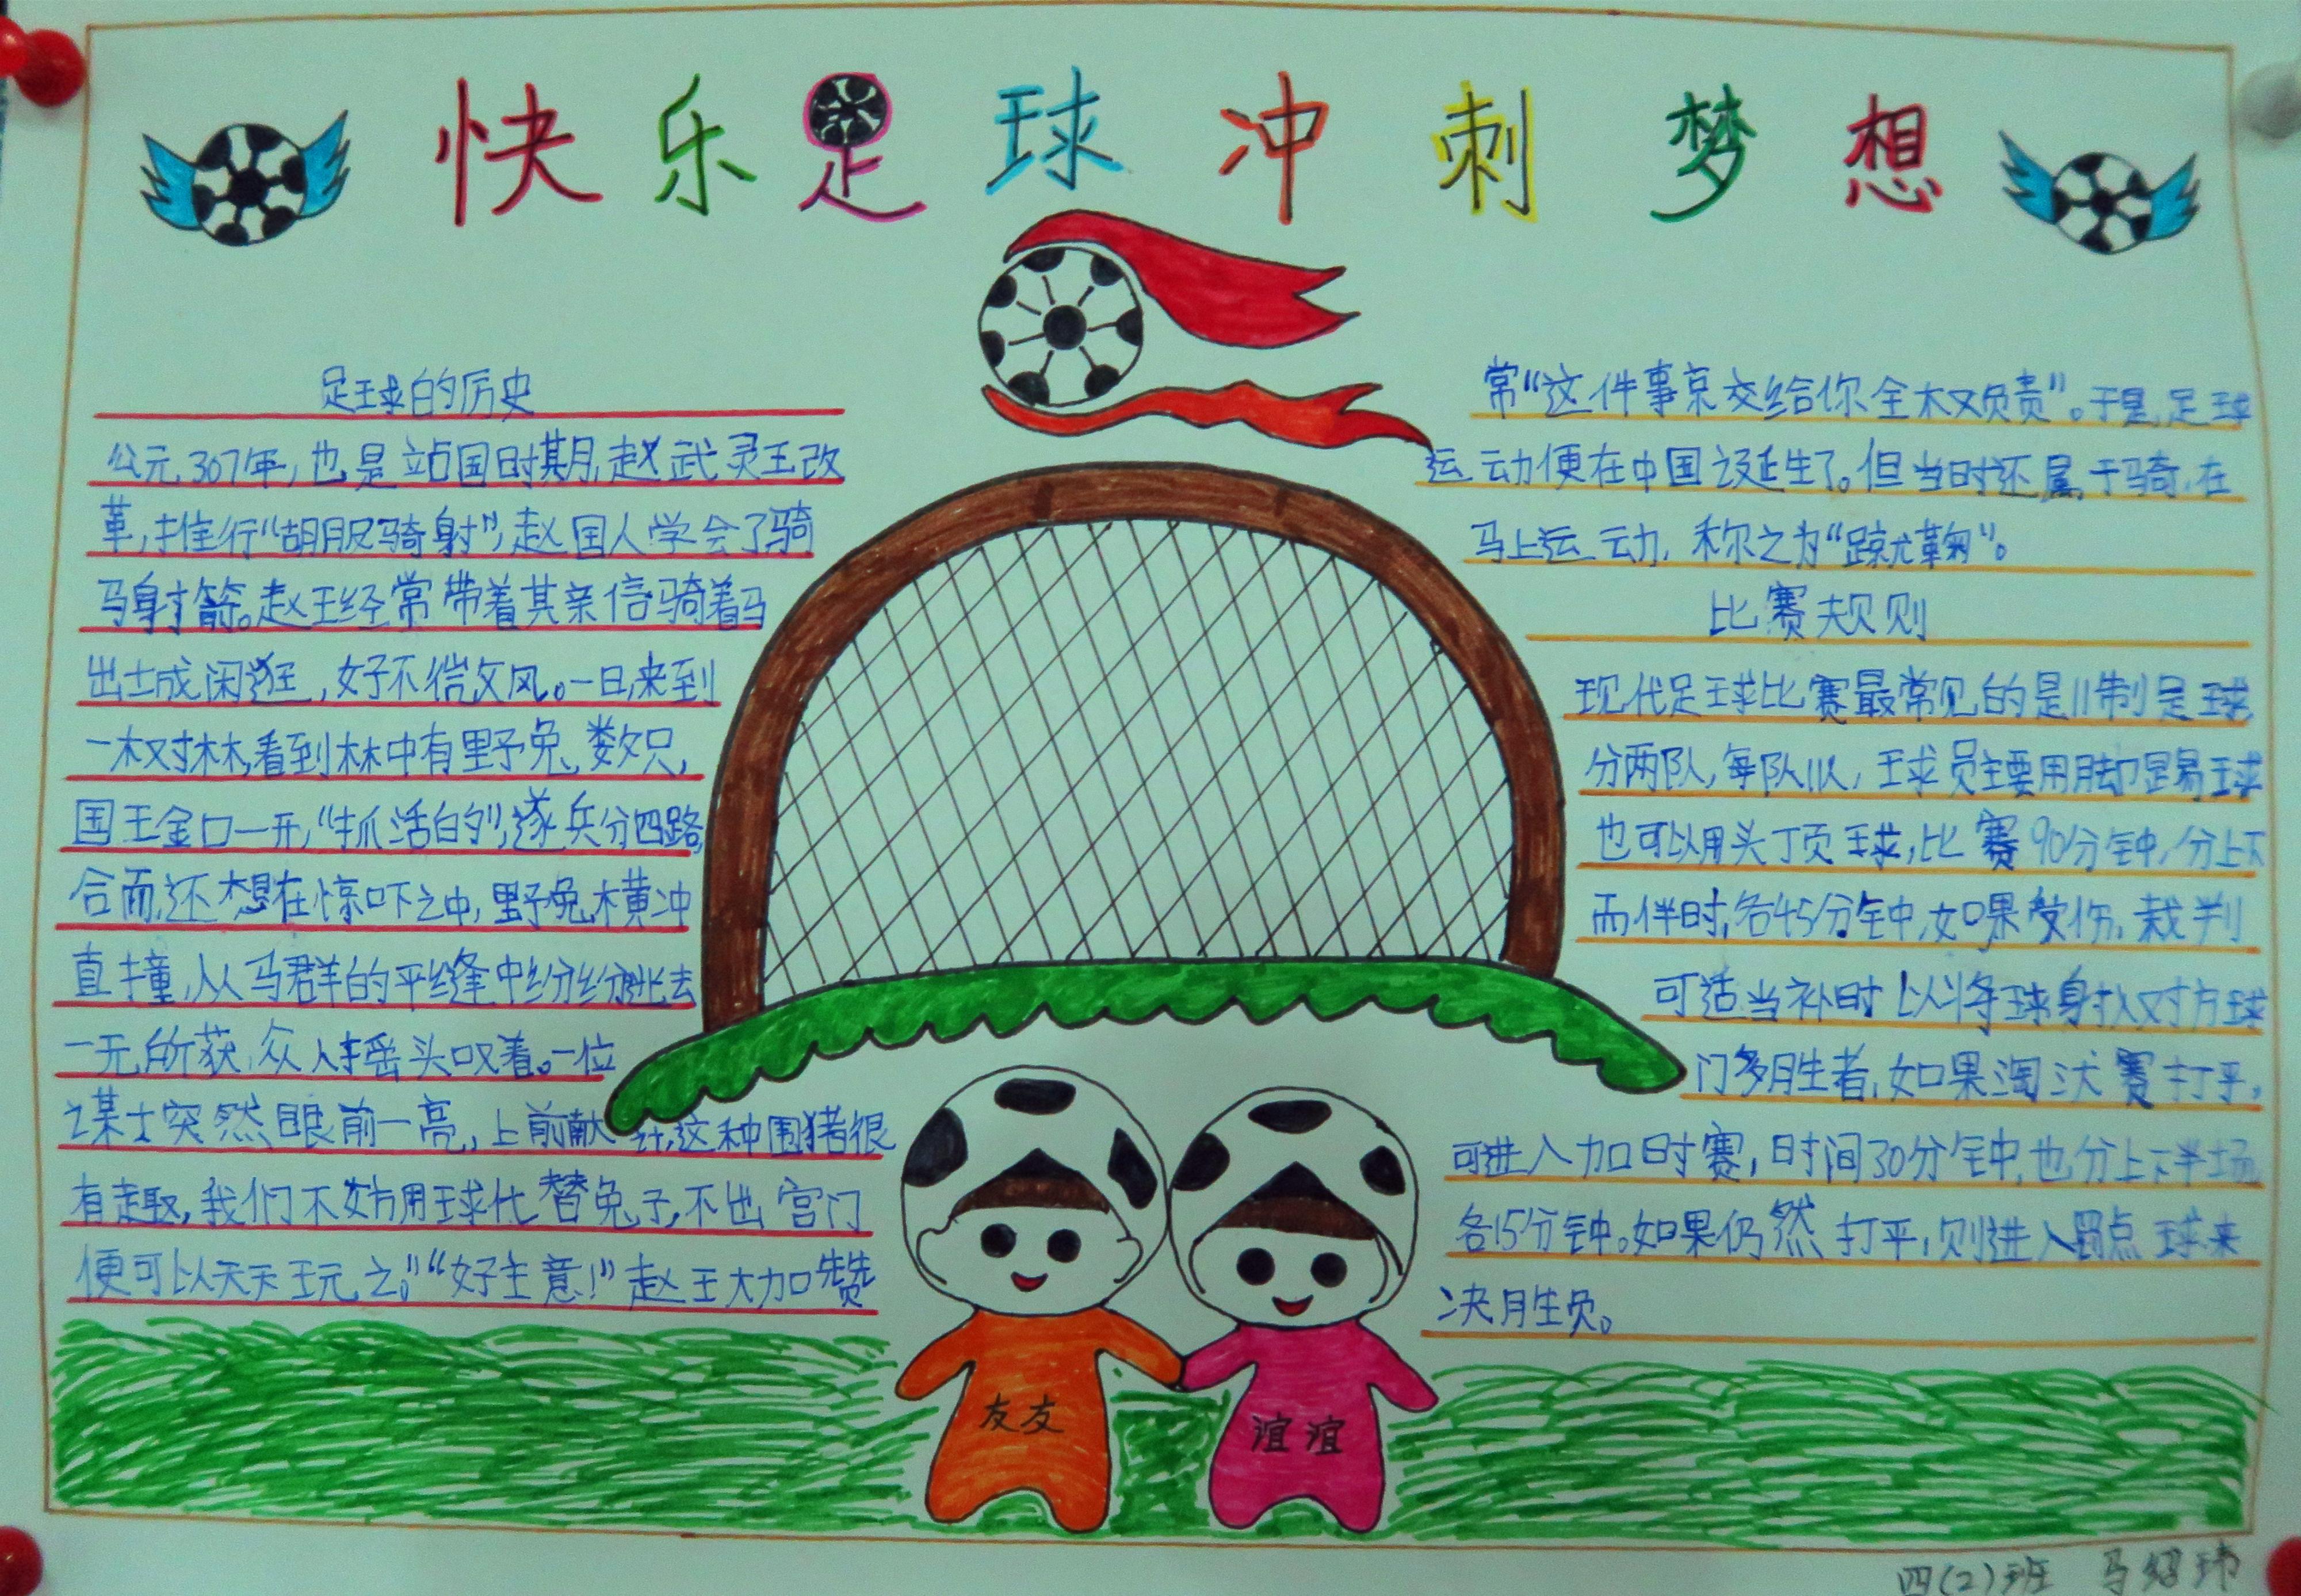 快乐足球冲刺梦想
足球的历史
公元307年,也是站国时期,赵武灵王改
革,推行“胡服骑射”,赵国人学会了骑
马射箭。赵王经常带着其亲信骑着马
出城闲逛,好不信文风。一日,来到
一树林,看到林中有野兔数只,
国王金口一开,“抓活的”,遂兵分四路,
合而还想在惊吓之中,野兔横冲
直撞,从马群的平缝中纷纷逃去
一无所获,众人摇头叹着。一位
谋士突然眼前一亮,上前献计,这种围猪很
有趣,我们不妨用球代替兔子,不出宫门
便可以天天玩之。”“好主意!”赵王大加赞
常“这件事京交给你全权负责”。于是,足球
运动便在中国诞生了。但当时还属于骑在
马上运动,称之为“蹴鞠”。
比赛规则
现代足球比赛最常见的是11制足球
分两队,每队11人,球员主要用脚踢球
也可以用头丁页球,比赛90分钟,分上下
而伴时,各45分钟,如果受伤,裁判
可适当补时以将球身扒对方球
门多胜者,如果淘汰赛打平,
可进入加时赛,时间30分钟,也分上下半场
各15分钟。如果仍然打平,则进入罚点球来
决胜负。
友友
谊谊
四(2)班 马绍玮